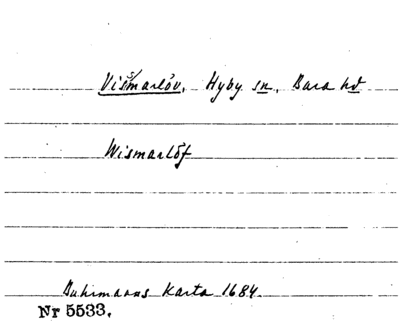 Vismarlöv, Hyby sn, Bara hd
Wismarlöf
Buhrmans Karta 1684.
Nr 5533.